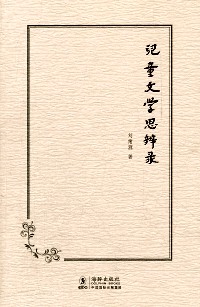 儿童文学思辨录
刘绪源 著
海豚出版社
DOLPHIN BOOKS
中国国际出版集团